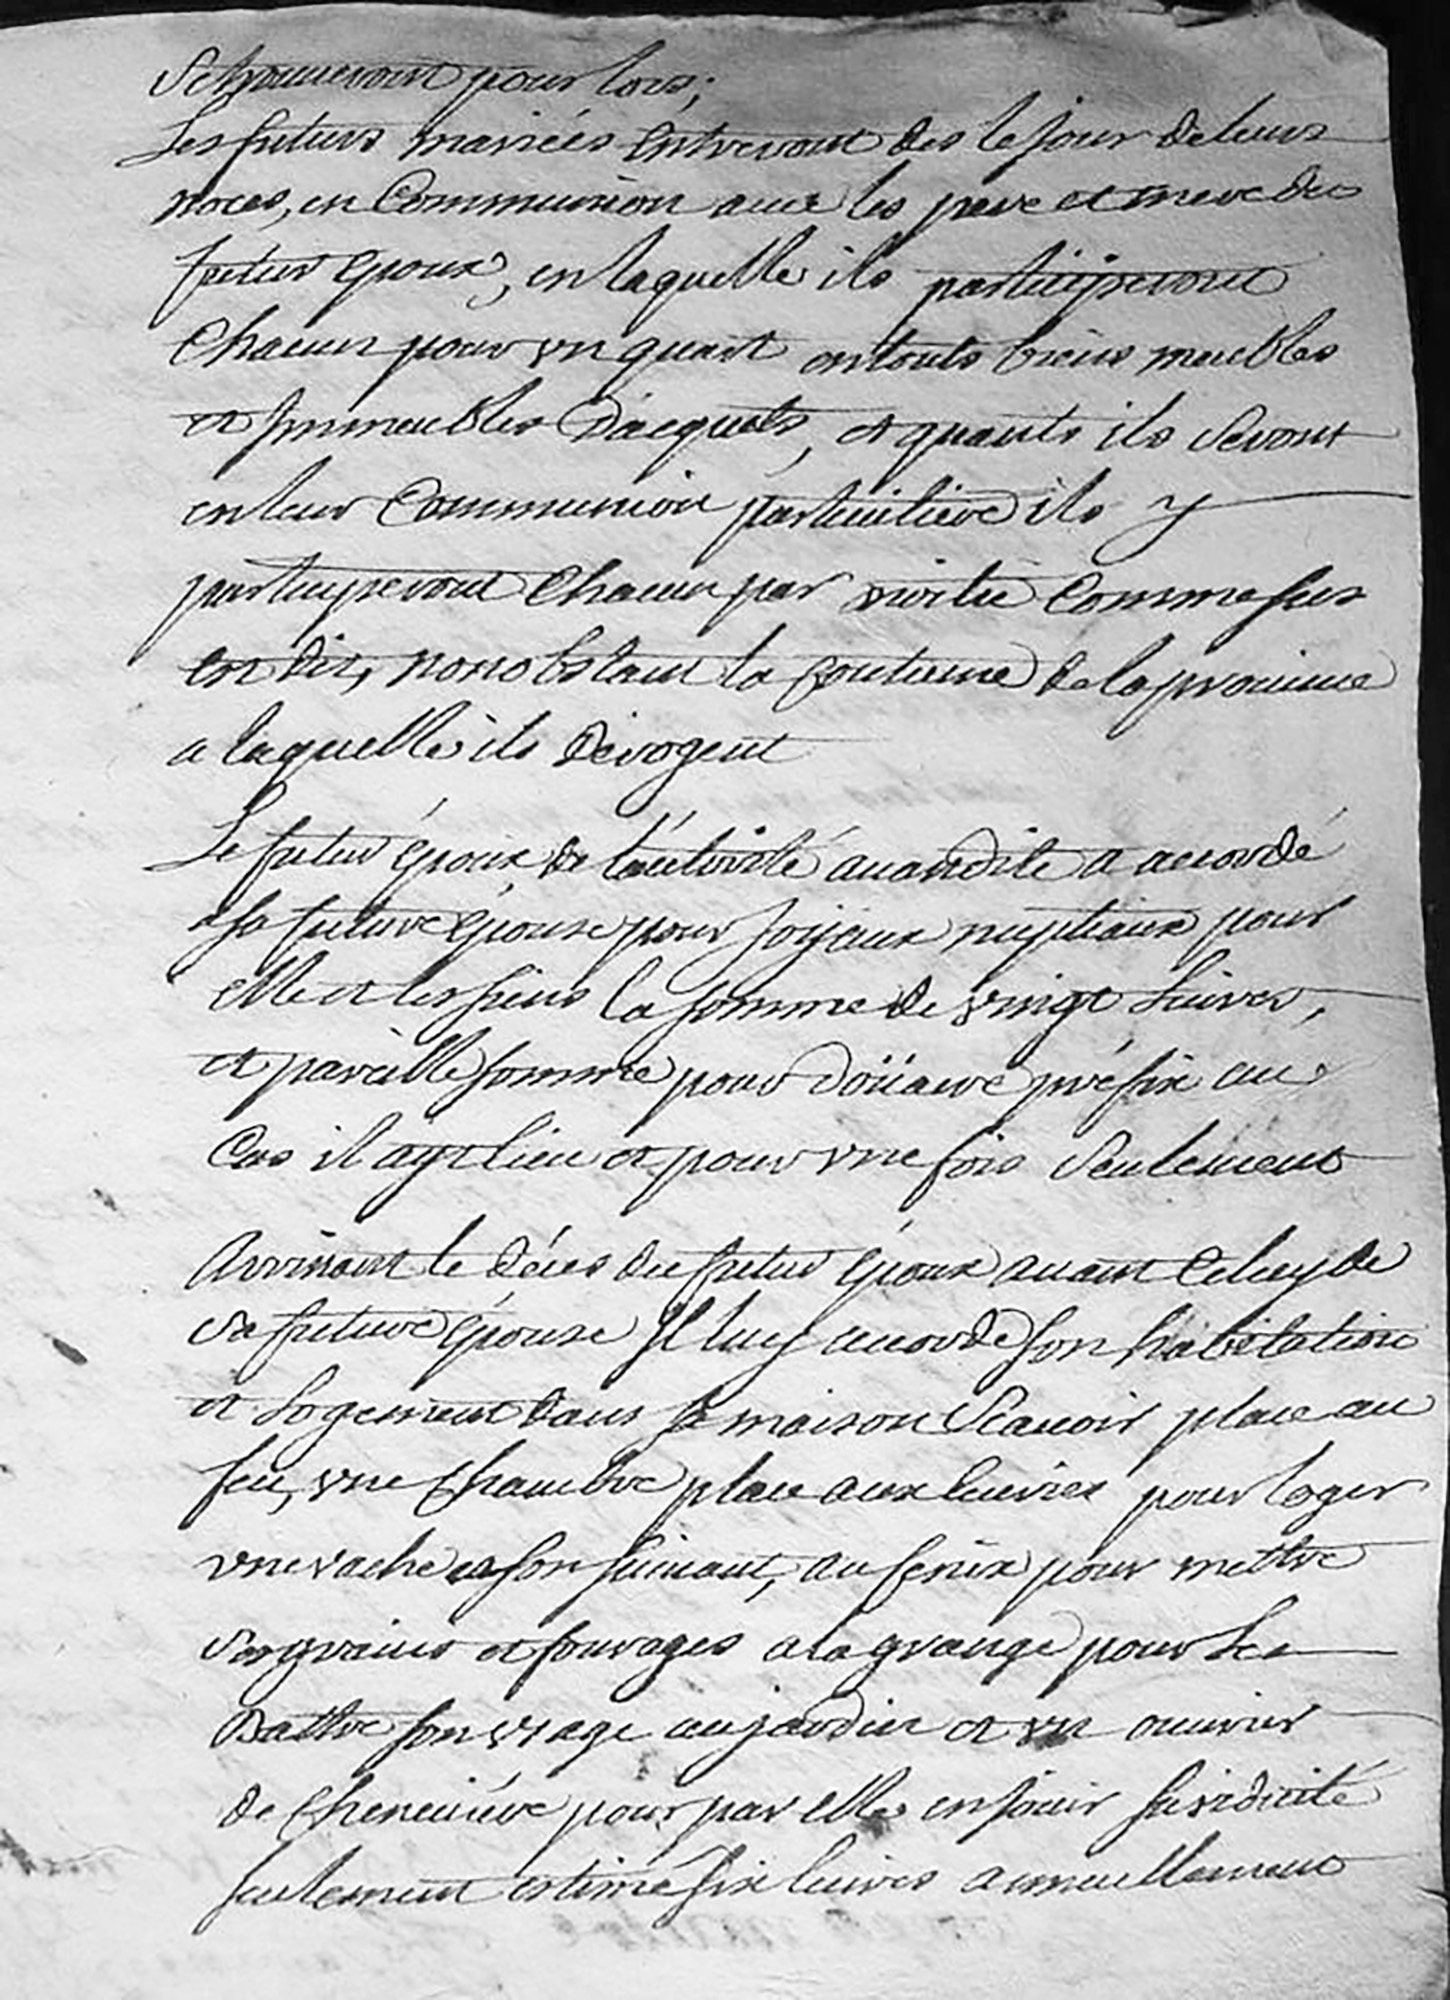 Se trouveront pour lors;
Les futurs mariées entreront des le jour de leurs
noces, en Communion avec les pere et mere du
futur Epoux, en laquelle ils participeront
Chacun pour un quart en touts biens meubles
et Immeubles d'acquets, et quants ils seront
en leur Communion particuliere ils y
participeront Chacun par moitié Comme sus
est dit, nonobstant la Coutume de la province
a laquelle ils dérogent
Le futur époux de l'autorité avandite a accordé
a sa future épouse pour joÿaux nuptiaux pour
elle et les siens la somme de vingt Livres,
et pareille somme pour doüaire préfix au
Cas il ayt lieu et pour une fois Seulement
Arrivant le décés du futur époux avant Celuy de
sa future épouse Il luy accorde son habitation
et Logement dans sa maison Scavoir place au
feu, une Chambre place aux écuries pour loger
une vache et son suivant, au feniz pour mettre
ses grains et fourages a la grange pour les
Battre son usage au jardin et un ouvrier
de Cheneviére pour par elle en jouir sa viduité
seulement estimé six livres annuellement